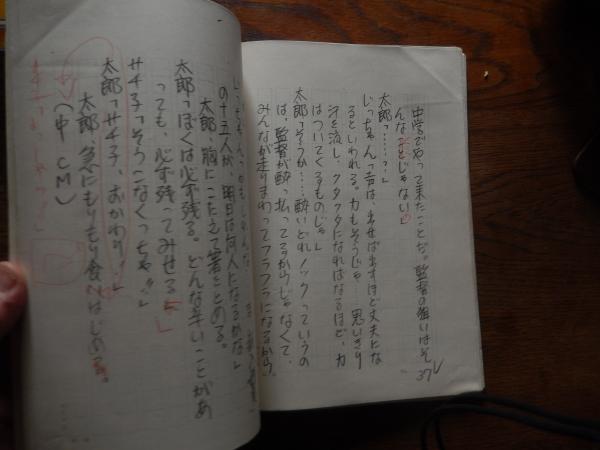 中学でやって来たことだ。監督の狙いはそ
37
んなことじゃない」
太郎「………？」
じっちゃん「声は、出せば出すほど丈夫にな
るといわれる。力もそうじゃ…思いきり
汗を流し、クタクタになればなるほど、力
はついてくるものじゃ」
太郎「そうか…酔いどれノックっていうの
は、監督が酔っ払ってるからじゃなくて、
みんなが走りまわってフラフラになるから。
の十五人が、明日は何人になるかな」
太郎、胸にこたえて箸をとめる。
太郎「ぼくは必ず残る。どんな辛いことがあ
っても、必ず残ってみせる」
サチ子「そうこなくっちゃ」
太郎「サチ子、おかわり」
太郎、急にもりもり食べはじめる。
（中 CM）